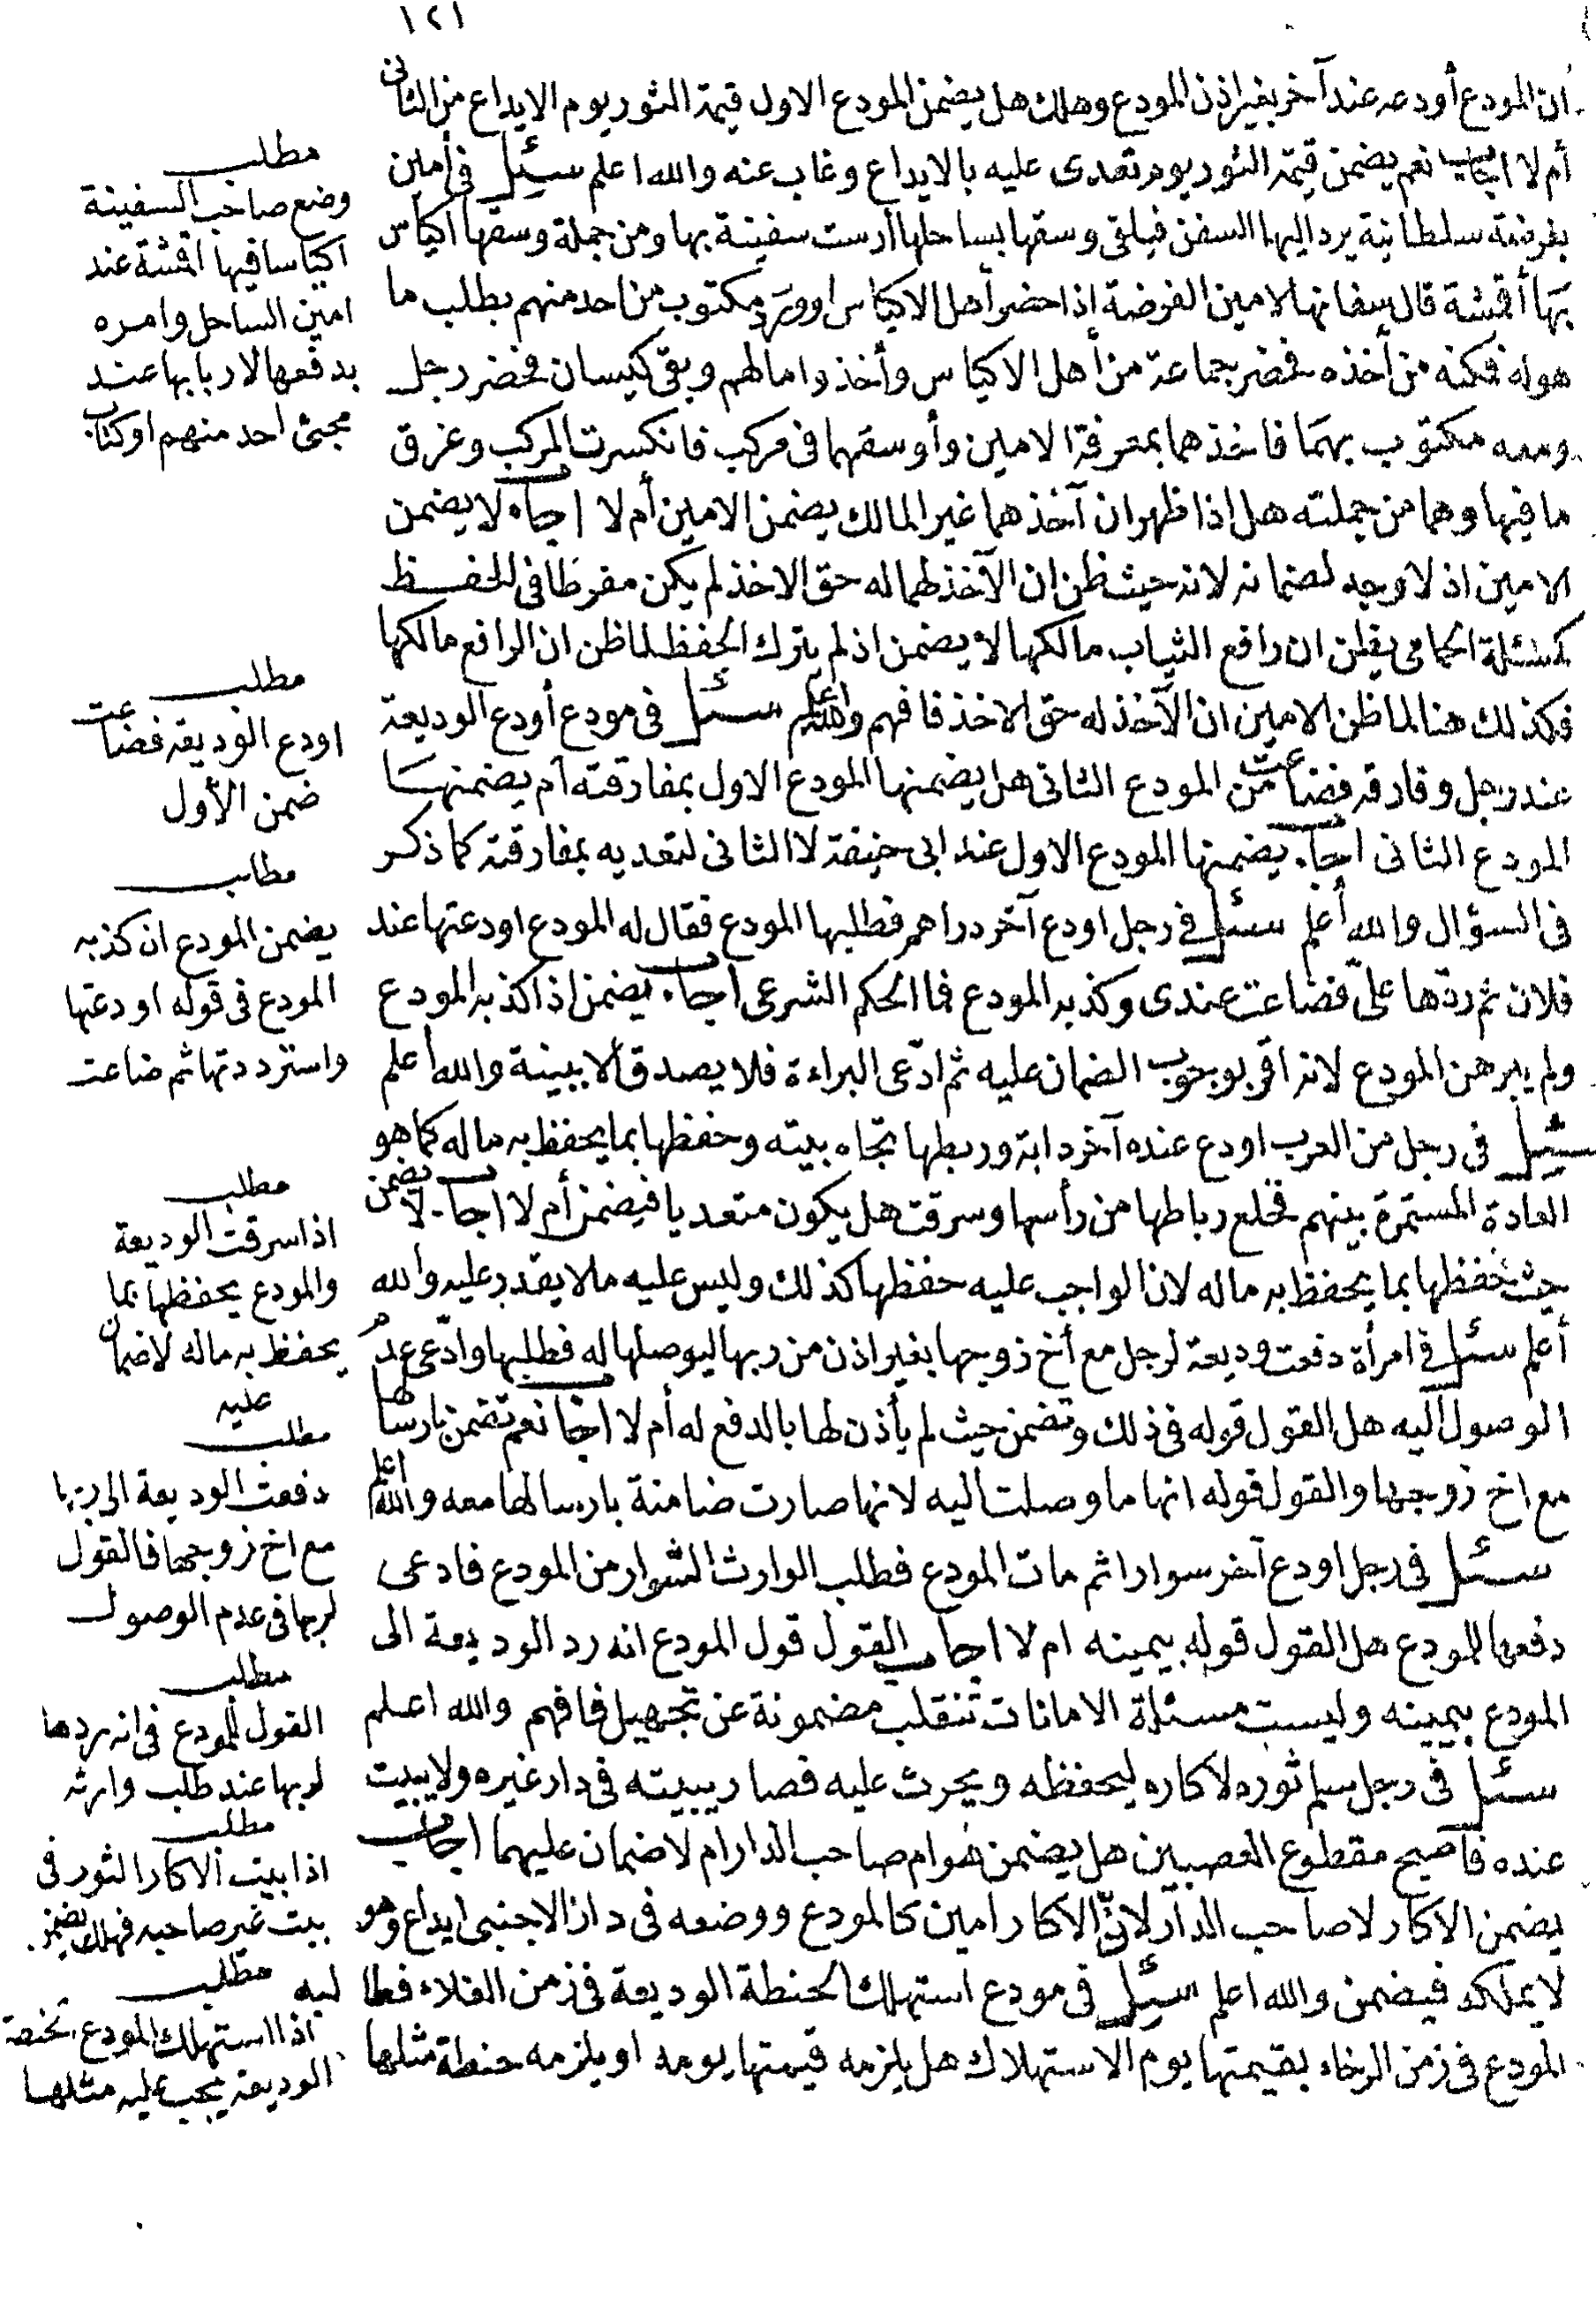 ١٢١
أن المودع أودعه عند آخر بغير اذن المودع وهلك هل يضمن المودع الاول قيمة الثور يوم الايداع من الثانى
أم لا اجاب نعم يضمن قيمة الثور يوم تعدى عليه بالايداع وغاب عنه والله اعلم سئل فى أمين
بفرضة سلطانية يرد اليها السفن فيلقى وسقها بساحلها أرست سفينة بها ومن جملة وسقها اكياس
بها أقمشة قال سفانها لامين الفرضة اذا حضر أهل الاكياس او ورد مكتوب من احد منهم بطلب ما
هو له فمكنه من أخذه فحضر جماعة من أهل الاكياس وأخذوا مالهم وبقى كيسان فحضر رجل
ومعه مكتوب بهما فاخذهما بمعرفة الامين وأوسقهما فى مركب فانكسرت المركب وغرق
ما فيها وهما من جملته هل اذا ظهر ان آخذهما غير المالك يضمن الامين أم لا اجاب لا يضمن
الامين اذ لا وجه لضمانه لانه حيث ظن ان الآخذ لهما له حق الاخذ لم يكن مفرطا فى الحفظ
كمسئلة الحمامى يظن ان رافع الثياب مالكها لا يضمن اذ لم يترك الحفظ لما ظن ان الرافع مالكها
فكذلك هنا لما ظن الامين ان الآخذ له حق الاخذ فافهم والله اعلم سئل فى مودع أودع الوديعة
عند رجل وفارقه فضاعت من المودع الثانى هل يضمنها المودع الاول بمفارقته أم يضمنها
المودع الثانى اجاب يضمنها المودع الاول عند ابى حنيفة لا الثانى لتعديه بمفارقته كما ذكر
فى السؤال والله أعلم سئل فى رجل اودع آخر دراهم فطلبها المودع فقال له المودع اودعتها عند
فلان ثم ردّها علىّ فضاعت عندى وكذبه المودع فما الحكم الشرعى اجاب يضمن اذا كذبه المودع
ولم يبرهن المودع لانه اقر بوجوب الضمان عليه ثم ادّعى البراءة فلا يصدق الا ببينة والله أعلم
سئل فى رجل من العرب اودع عنده آخر دابة وربطها تجاه بيته وحفظها بما يحفظ به ماله كما هو
العادة المستمرة بينهم فخلع رباطها من رأسها وسرقت هل يكون متعديا فيضمن أم لا اجاب لا يضمن
حيث حفظها بما يحفظ به ماله لان الواجب عليه حفظها كذلك وليس عليه ما لا يقدر عليه والله
أعلم سئل فى امرأة دفعت وديعة لرجل مع أخ زوجها بغير اذن من ربها ليوصلها له فطلبها وادّعى عدم
الوصول اليه هل القول قوله فى ذلك وتضمن حيث لم يأذن لها بالدفع له أم لا اجاب نعم تضمن بارسالها
مع اخ زوجها والقول قوله انها ما وصلت اليه لانها صارت ضامنة بارسالها معه والله اعلم
سئل فى رجل اودع آخر سوارا ثم مات المودع فطلب الوارث السوار من المودع فادعى
دفعها للمودع هل القول قوله بيمينه ام لا اجاب القول قول المودع انه رد الوديعة الى
المودع بيمينه وليست مسئلة الامانات تنقلب مضمونة عن تجهيل فافهم والله اعلم
سئل فى رجل سلم ثوره لاكاره ليحفظه ويحرث عليه فصار يبيته فى دار غيره ولا يبيت
عنده فأصبح مقطوع العصبين هل يضمن هو ام صاحب الدار ام لا ضمان عليهما اجاب
يضمن الاكار لا صاحب الدار لان الاكار امين كالمودع ووضعه فى دار الاجنبى ايداع وهو
لا يملكه فيضمن والله اعلم سئل فى مودع استهلك الحنطة الوديعة فى زمن الغلاء فطالبه
المودع فى زمن الرخاء بقيمتها يوم الاستهلاك هل يلزمه قيمتها يومه او يلزمه حنطة مثلها
مطلب
وضع صاحب السفينة
اكياسا فيها اقمشة عند
امين الساحل وامره
بدفعها لاربابها عند
مجئ احد منهم او كتاب
مطلب
اودع الوديعة فضاعت
ضمن الأول
مطلب
يضمن المودع ان كذبه
المودع فى قوله اودعتها
واسترددتها ثم ضاعت
مطلب
اذا سرقت الوديعة
والمودع يحفظها بما
يحفظ به ماله لا ضمان
عليه
مطلب
دفعت الوديعة الى ربها
مع اخ زوجها فالقول
لربها فى عدم الوصول
مطلب
القول للمودع فى انه ردها
لربها عند طلب وارثه
مطلب
اذا بيت الاكار الثور فى
بيت غير صاحبه فهلك يضمن
مطلب
اذا استهلك المودع الحنطة
الوديعة يجب عليه مثلها